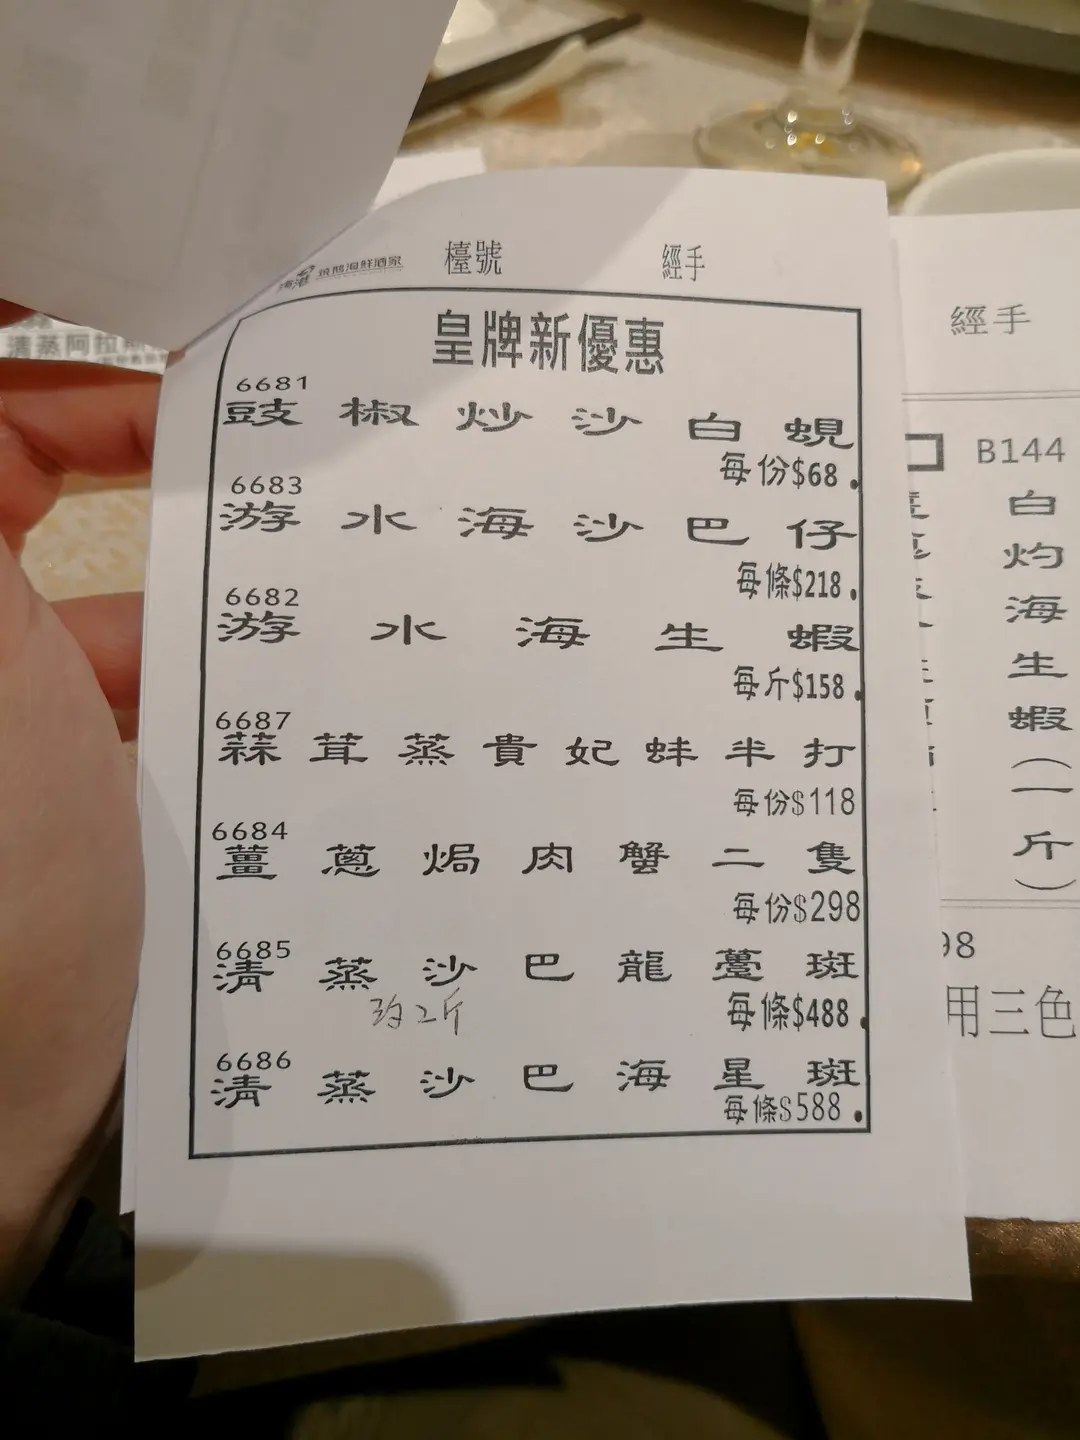 檯號 經手
皇牌新優惠
6681
豉椒炒沙白蜆
每份$68.
6683
游水海沙巴仔
每條$218.
6682
游水海生蝦
每斤$158.
6687
蒜茸蒸貴妃蚌半打
每份$118
6684
薑蔥焗肉蟹二隻
每份$298
6685
清蒸沙巴龍躉斑
約2斤
每條$488.
6686
清蒸沙巴海星斑
每條$588.
清蒸阿拉斯
經手
B144
白灼海生蝦(一斤)
98
用三色